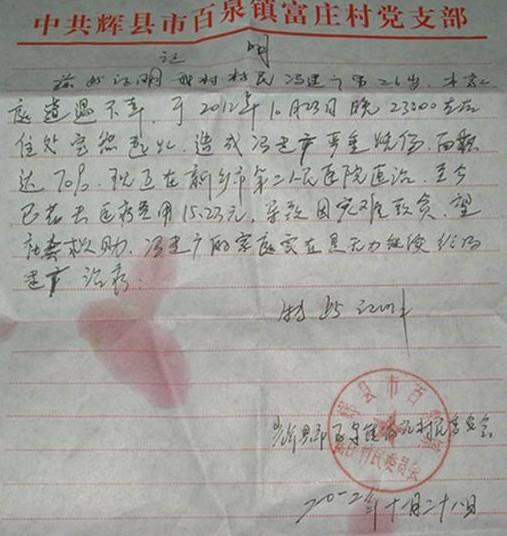 中共辉县市百泉镇富庄村党支部
证 明
兹有证明我村村民冯建广男26岁,本家
庭遭遇不幸,于2012年10月23日晚23:00左右
住处突然起火,造成冯建广严重烧伤,面积
达70%,现正在新乡市第二人民医院医治,至今
已花去医疗费用15.23元,导致因灾难致贫,望
社会救助,冯建广的家庭实在是无力继续给冯
建广治疗.
特此证明
辉县市百泉镇富庄村民委员会
辉县市百
村民委员会
2012年十月二十八日